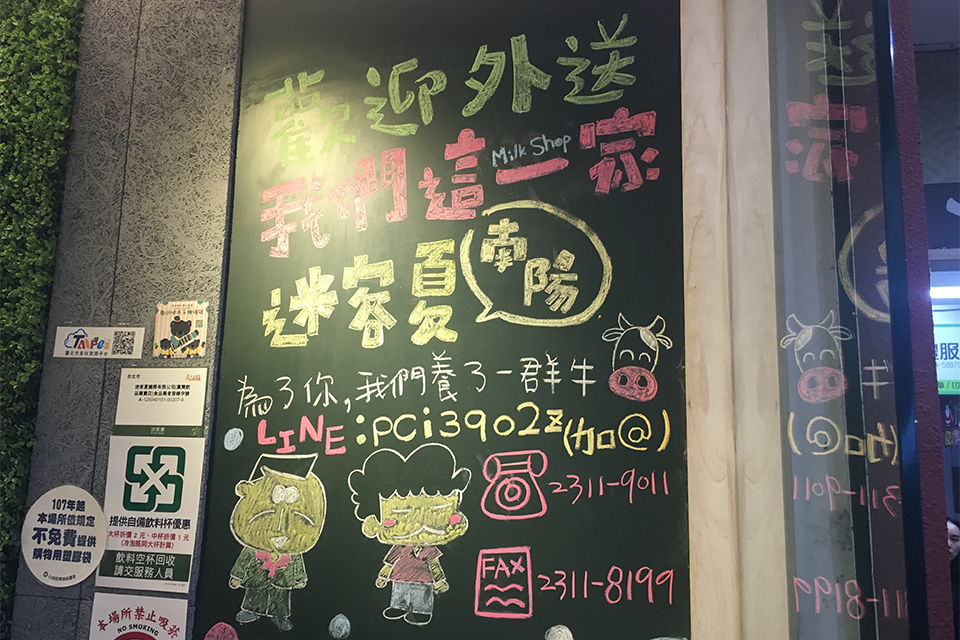 歡迎外送
Milk Shop
我們這一家
迷客夏
南陽
為了你,我們養了一群牛
LINE:pci3902z(加@)
2311-9011
FAX 2311-8199
TAIPEI
台北市
A-128949151-00207-6
提供自備飲料杯優惠
大杯折價 2 元、中杯折價 1 元
(冷泡瓶同大杯計算)
飲料空杯回收
請交服務人員
107年起
本場所依規定
不免費提供
購物用塑膠袋
本場所禁止吸菸
NO SMOKING
服